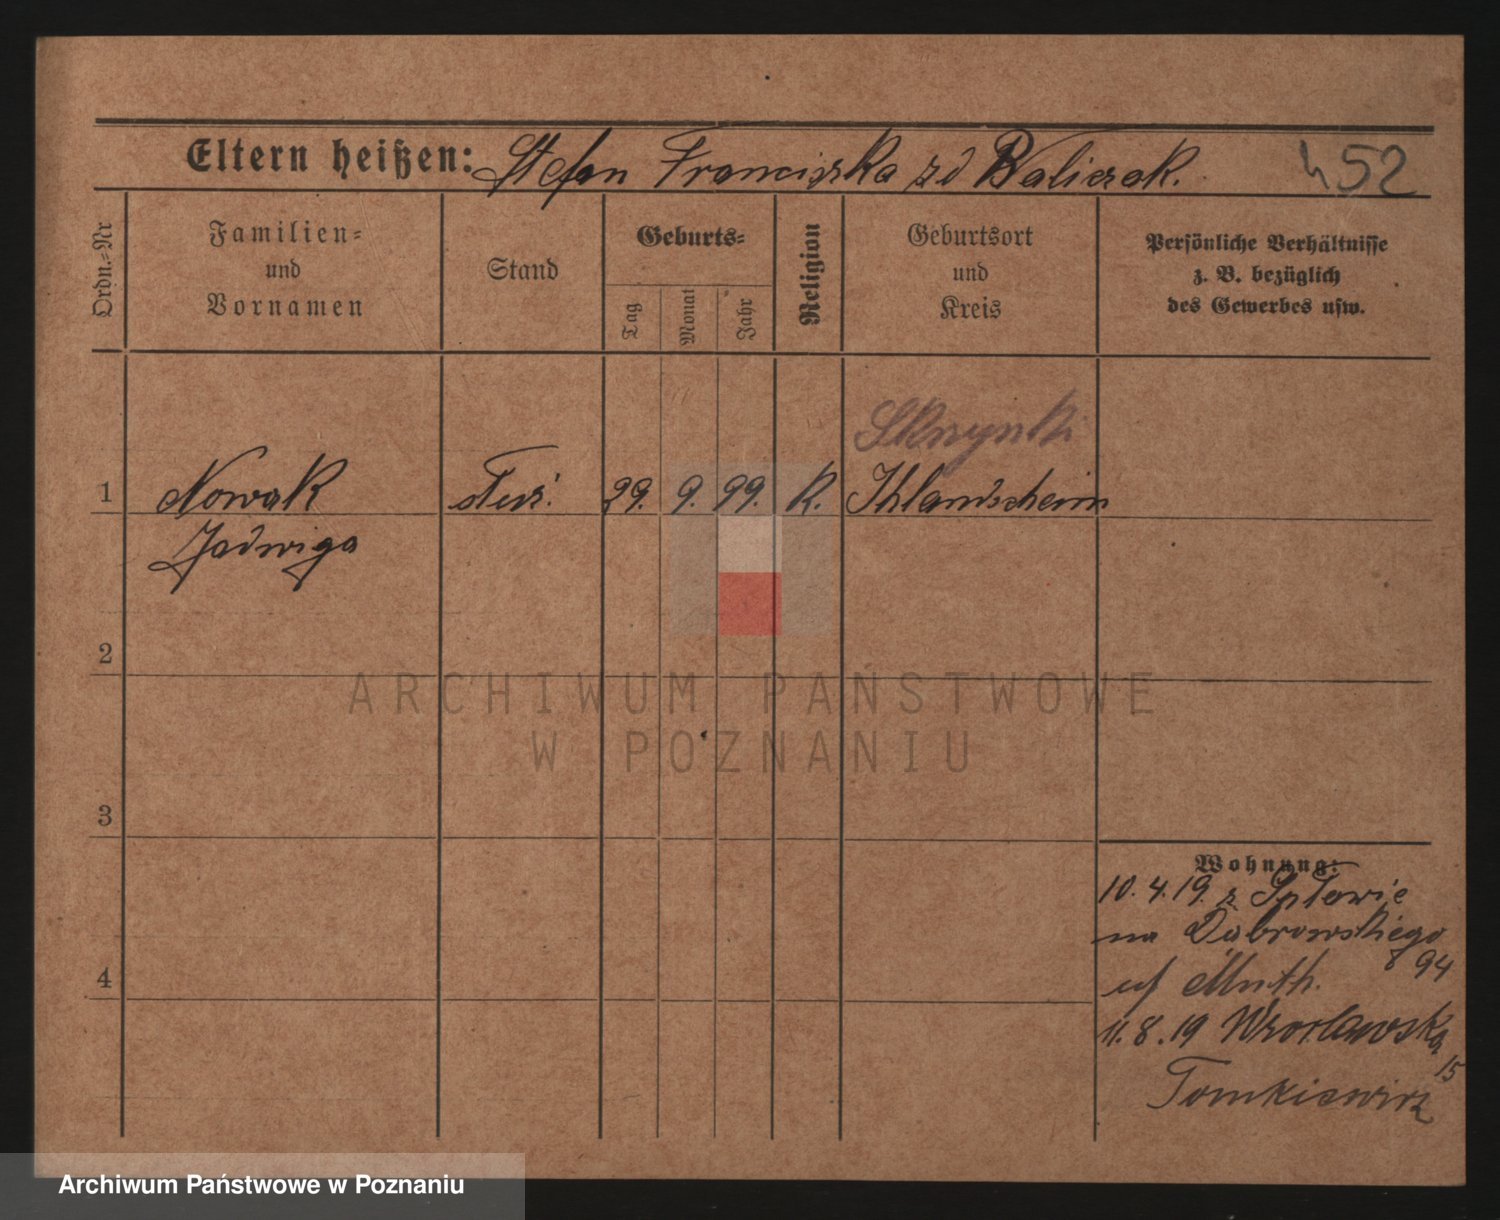 Eltern heißen: Stefan Franciszka zd Walicrak. 452
Ordn.-Nr
Familien-
und
Vornamen
Stand
Geburts-
Tag
Monat
Jahr
Religion
Geburtsort
und
Kreis
Persönliche Verhältnisse
z. B. bezüglich
des Gewerbes usw.
Skrzynki
1 Nowak służ. 29. 9. 99. K. Ihlandsheim
Jadwiga
2
3
4
Wohnung:
10. 4. 19. z
na Dąbrowskiego
94
uf Muth.
11. 8. 19 Wrocławska
15
Tomkiewicz
ARCHIWUM PAŃSTWOWE
W POZNANIU
Archiwum Państwowe w Poznaniu